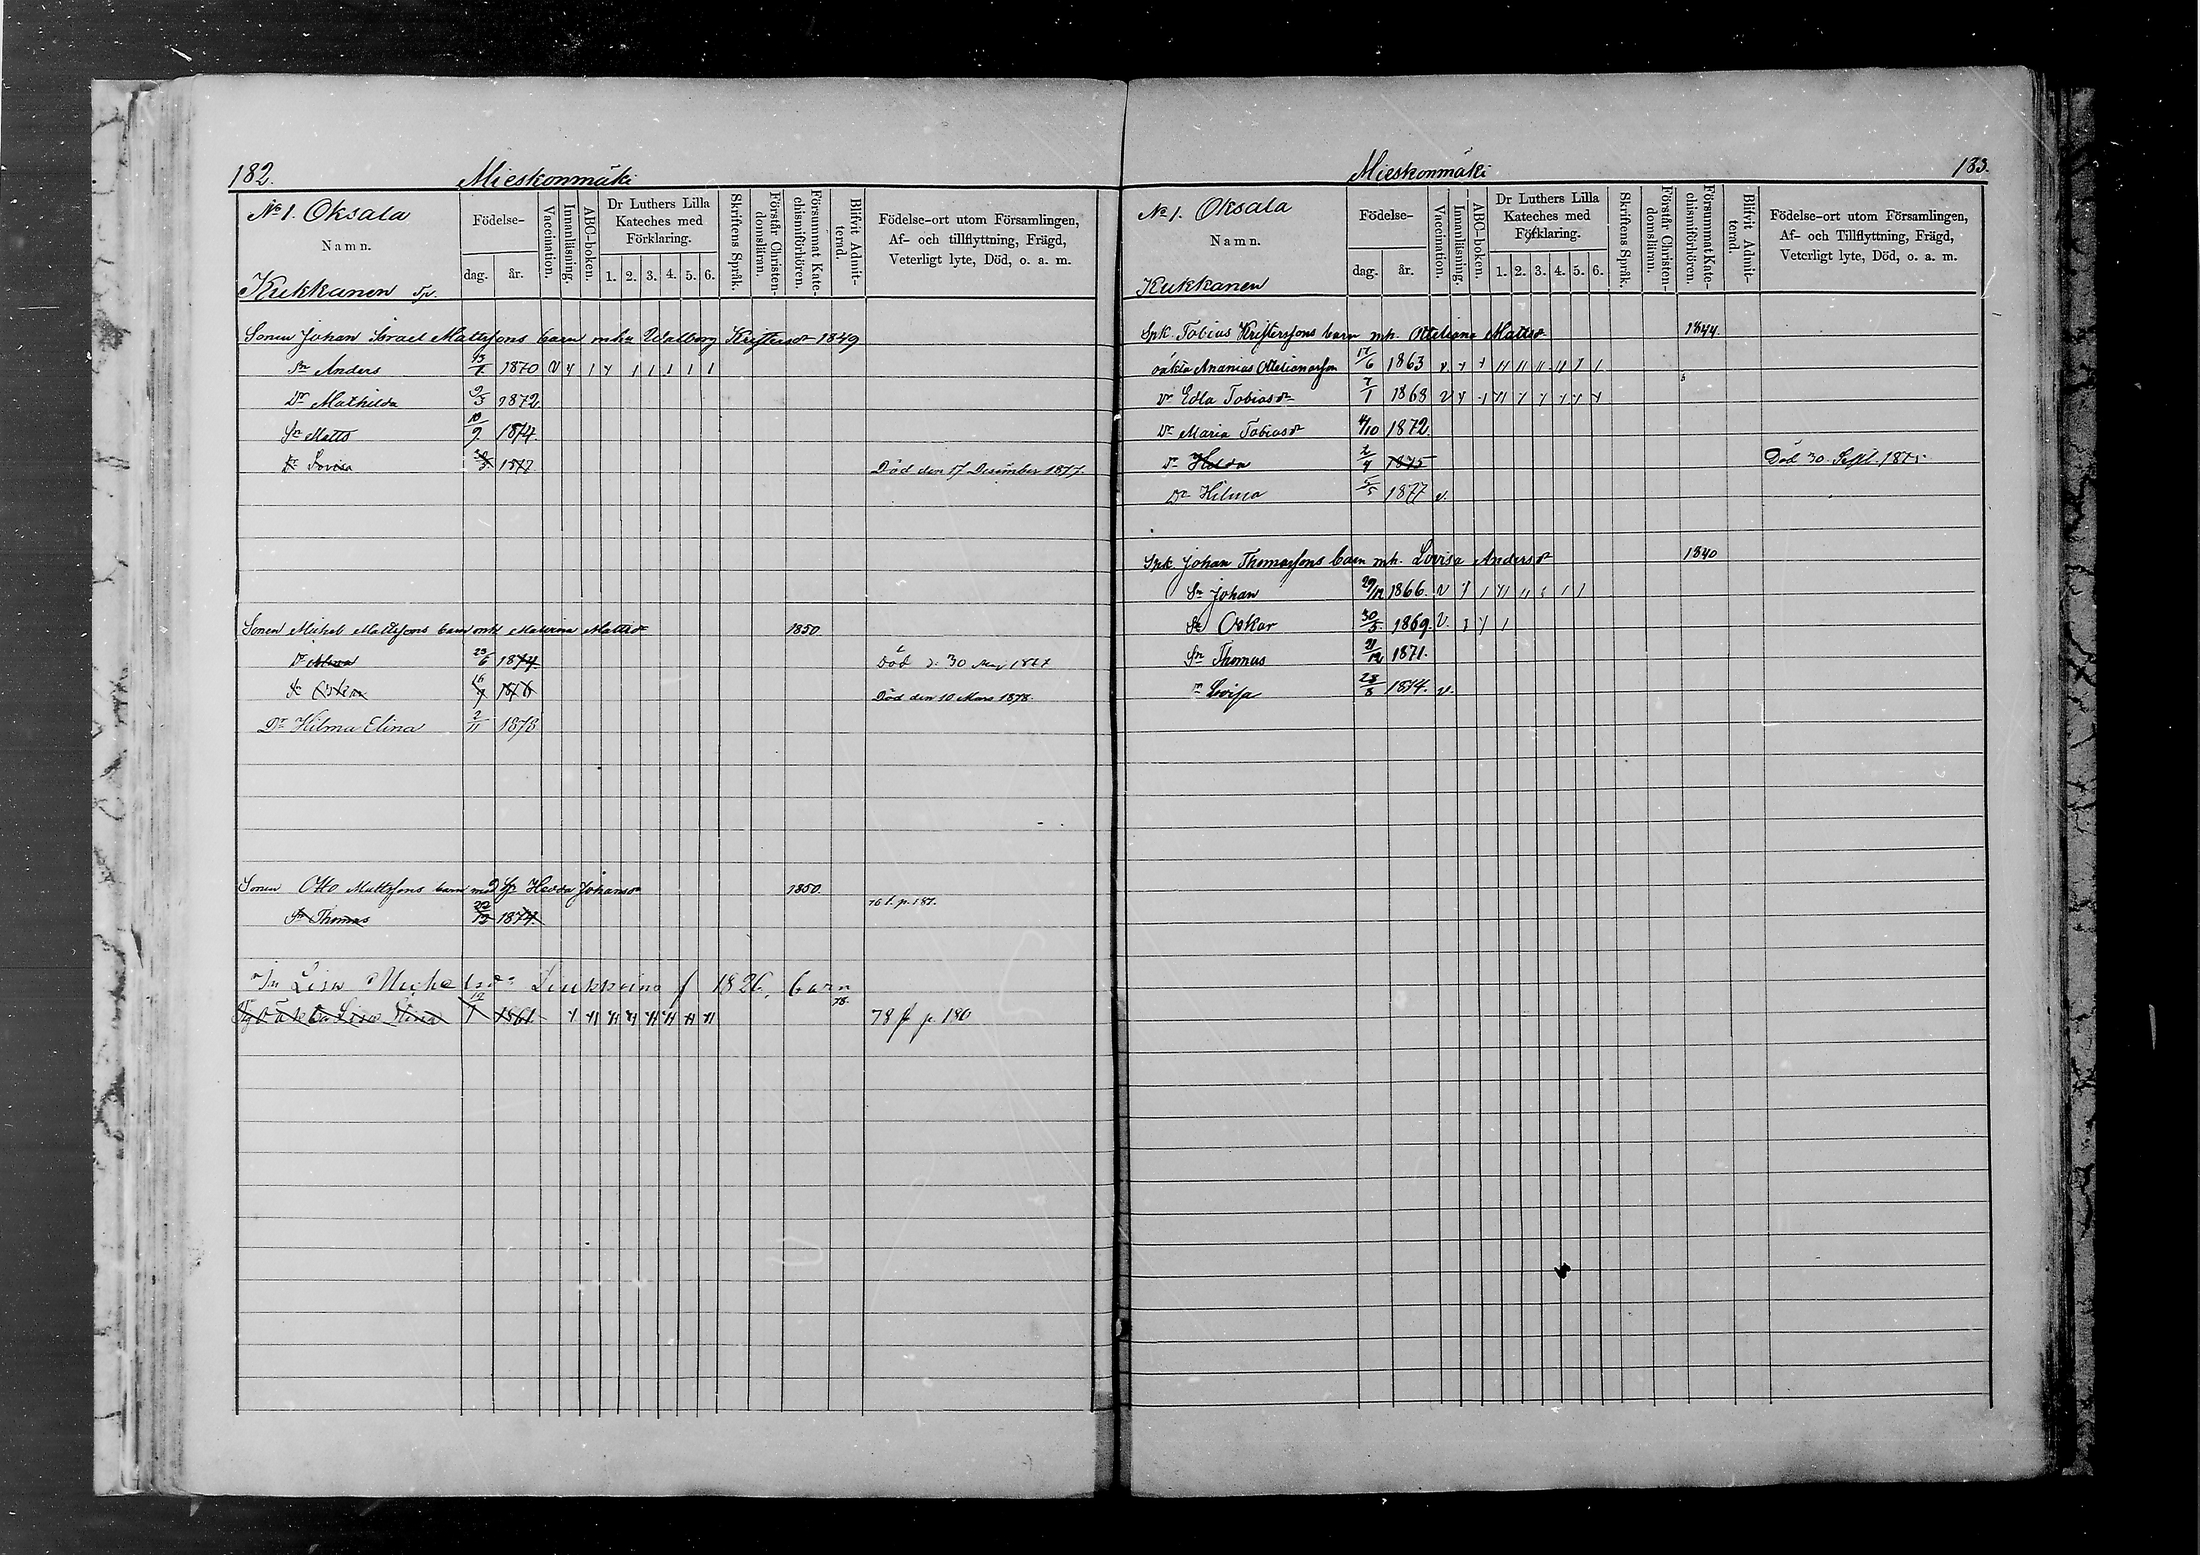 182.
Mieskonmäki
No 1. Oksala
Namn.
Kukkanen
Födelse-
dag.
år.
Vaccination.
Innanläsning.
ABC-boken.
Dr Luthers Lilla
Kateches med
Förklaring.
1. 2. 3. 4. 5. 6.
Skriftens Språk.
Förstår Christen-
domsläran.
Försummat Kate-
chismiförhören.
Blifvit Admit-
terad.
Födelse-ort utom Församlingen,
Af- och tillflyttning, Frägd,
Veterligt lyte, Död, o. a. m.
Sonen Johan Israel Mattssons barn mhu Walborg Kristersdr 1849
Sn Anders 13/1 1870
Dr Mathilda 9/3 1872
Sn Matts 10/9 1874
Dr Lovisa 1877 Död den 17 December 1877.
Sonen Michel Mattssons barn mh Mattsdr 1850
Dr Alma 23/6 1874 Död d. 30 1877
Sn 16/9 1876 Död den 10 Mars 1878.
Dr Hilma Elina 2/11 1878
Sonen Otto Mattssons barn med Hedda Johansdr 1850.
Sn Thomas 22/12 1874. p. 181.
Lisa 1826, barn
Lisa Stina 1861 78
78 p. 180
Mieskonmäki
183.
No 1. Oksala
Namn.
Kukkanen
Födelse-
dag.
år.
Vaccination.
Innanläsning.
ABC-boken.
Dr Luthers Lilla
Kateches med
Förklaring.
1. 2. 3. 4. 5. 6.
Skriftens Språk.
Förstår Christen-
domsläran.
Försummat Kate-
chismiförhören.
Blifvit Admit-
terad.
Födelse-ort utom Församlingen,
Af- och Tillflyttning, Frägd,
Veterligt lyte, Död, o. a. m.
Spk Tobias Kristerssons barn mh. Otteliana Mattsdr 1844.
oäkta Ananias Ottelianasson 17/6 1863
Dr Edla Tobiasdr 7/1 1868
Dr Maria Tobiasdr 4/10 1872.
Dr Hulda 2/4 1875 Död 30 Sept. 1875
Dr Hilma 5/5 1877 v.
Spk Johan Thomassons barn mh. Lovisa Andersdr 1840
Sn Johan 29/12 1866.
Sn Oskar 30/5 1869.
Sn Thomas 21/12 1871.
Dr Lovisa 28/8 1874. v.